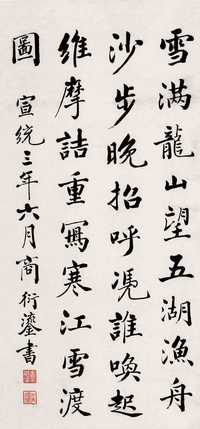 雪滿龍山望五湖漁舟
沙步晚招呼憑誰喚起
維摩詰重寫寒江雪渡
圖
宣統三年六月商衍鎏書